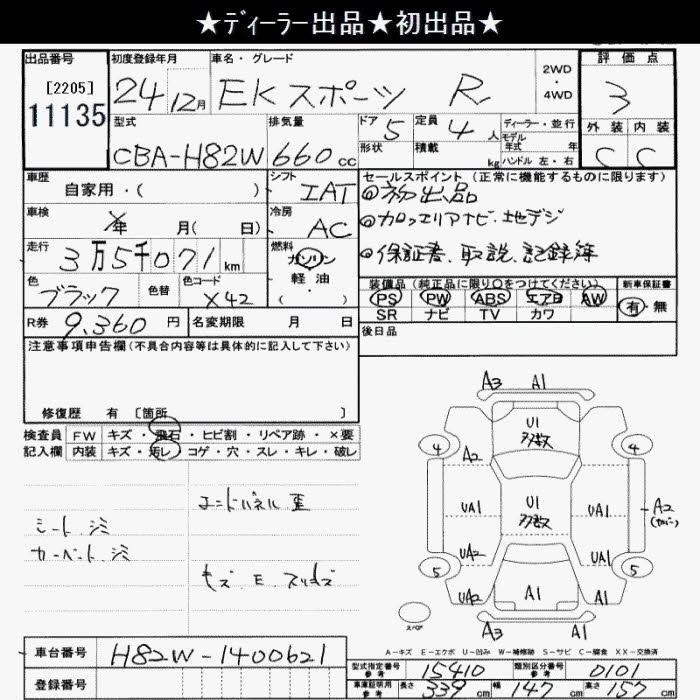 ★ディーラー出品★初出品★
出品番号 初度登録年月 車名・グレード 2WD・4WD 評価点
[2205] 11135 24 12月 EKスポーツ R 3
型式 排気量 ドア 5 定員 4人 ディーラー・並行 外装 内装
CBA-H82W 660cc 形状 積載 kg モデル年式 年 ハンドル 左・右 C C
車歴 自家用・( ) シフト IAT セールスポイント (正常に機能するものに限ります)
◎初出品
車検 年 月( 日) 冷房 AC ◎カロッエリアナビ、地デジ
走行 3万5千071km 燃料 ガソリン・軽油・( ) ◎保証書、取説、記録簿
色 ブラック 色替 色コード X42 装備品 (純正品に限り○をつけてください) 新車保証書
PS PW ABS エアB AW 有・無
SR ナビ TV カワ
R券 9,360円 名変期限 月 日 後日品
注意事項申告欄(不具合内容等は具体的に記入して下さい)
修復歴 有 〔箇所 〕
検査員 FW キズ・飛石・ヒビ割・リペア跡・×要
記入欄 内装 キズ・汚レ・コゲ・穴・スレ・キレ・破レ
エンドパネル 歪
シート、ジミ
カーペット、ジミ
キズ、E、スリキズ
A3 A1
U1 多数
4 A2 4
UA1 U1 多数 UA1 A2 (カバー)
UA2 UA1
5 5
UA2 A1 A1
スペア A3 A1
A-キズ E-エクボ U-凹み W-補修跡 S-サビ C-腐食 XX-交換済
車台番号 H82W-1400621
型式指定番号 参考 15410 類別区分番号 参考 0101
登録番号
車庫証明用 参考 長さ 339cm 幅 147cm 高さ 157cm